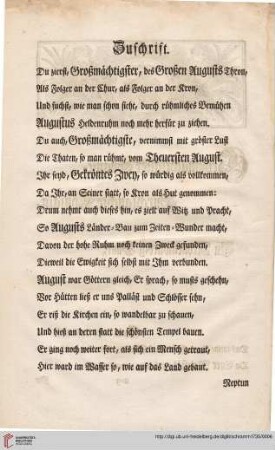 Zuschrift.
Du zierst, Großmächtigster, des Großen Augusts Thron,
Als Folger an der Chur, als Folger an der Kron,
Und suchst, wie man schon sieht, durch rühmliches Bemühen
Augustus Heldenruhm noch mehr herfür zu ziehen.
Du auch, Großmächtigste, vernimmst mit gröster Lust
Die Thaten, so man rühmt, vom Theuersten August.
Ihr seyd, Gekröntes Zwey, so würdig als vollkommen,
Da Ihr, an Seiner statt, so Kron als Hut genommen:
Drum nehmt auch dieses hin, es zielt auf Witz und Pracht,
So Augusts Länder-Bau zum Zeiten-Wunder macht,
Davon der hohe Ruhm noch keinen Zweck gefunden,
Dieweil die Ewigkeit sich selbst mit Ihm verbunden.
August war Göttern gleich, Er sprach, so mußts geschehn,
Vor Hütten ließ er uns Palläst und Schlösser sehn,
Er riß die Kirchen ein, so wandelbar zu schauen,
Und hieß an deren statt die schönsten Tempel bauen.
Er ging noch weiter fort, als sich ein Mensch getraut,
Hier ward im Wasser so, wie auf das Land gebaut.
Neptun